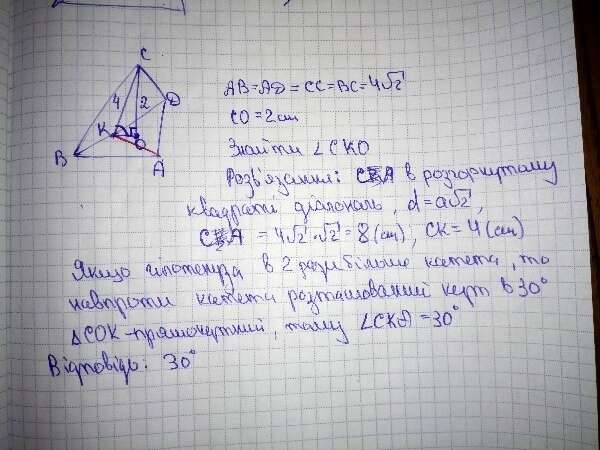 C
4 2 D
K O
B A
AB=AD=CC=BC=4√2
CO=2см
Знайти ∠CKO
Розв'язання: CA в розгорнутому
квадраті діагональ, d=a√2,
CA = 4√2·√2=8(см); CK=4(см)
Якщо гіпотенуза в 2 рази більше катета, то
навпроти катета розташований кут в 30°
△COK-прямокутний, тому ∠CKO=30°
Відповідь: 30°